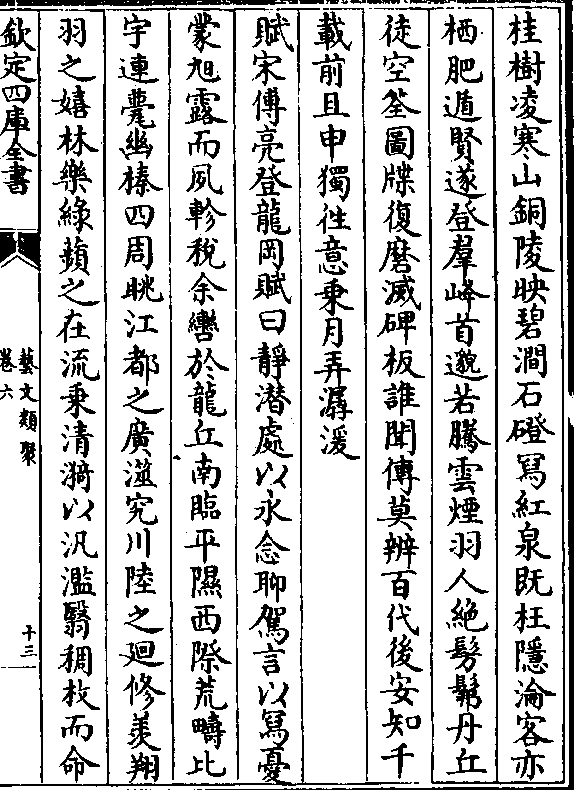 桂樹凌寒山銅陵映碧澗石磴冩紅泉既枉隱淪客亦
栖肥遁賢遂登羣峰首邈若騰雲煙羽人絶髣髴丹丘
徒空筌圖牒復磨滅碑板誰聞傳莫辨百代後安知千
載前且申獨徃意乘月弄潺湲
賦宋傅亮登龍岡賦曰靜潜處以永念聊駕言以冩憂
蒙旭露而夙軫税余轡於龍丘南臨平隰西際荒疇比
宇連甍幽榛四周眺江都之廣溢究川陸之廻修羨翔
羽之嬉林樂綠蘋之在流乘清漪以汎濫翳稠枚而命
欽定四庫全書
藝文類聚
卷六
十三